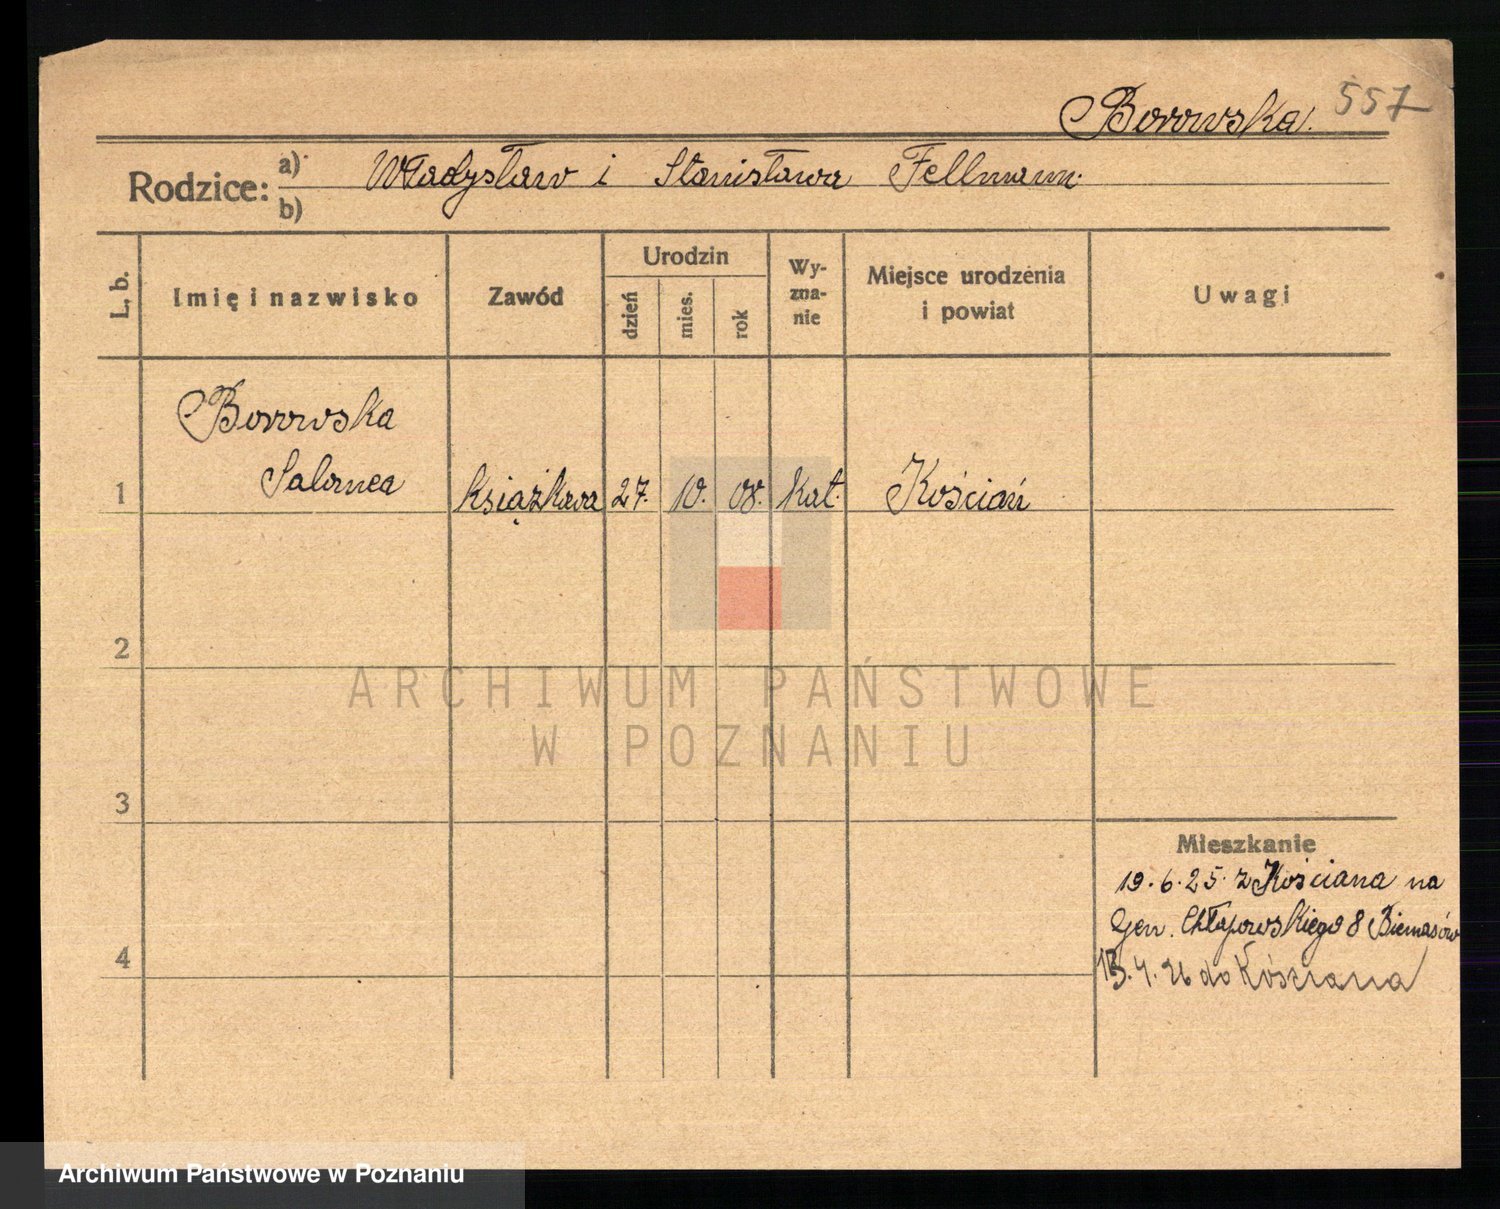 557
Borowska.
Rodzice: a) Władysław i Stanisława Fellmann.
b)
L. b.
Imię i nazwisko
Zawód
Urodzin
dzień
mies.
rok
Wy-
zna-
nie
Miejsce urodzenia
i powiat
Uwagi
Borowska
Salomea
1
27. 10. 08. kat. Kościan
2
3
4
Mieszkanie
19.6.25. z Kościana na
Gen. Chłapowskiego 8
4. 26 do Kościana
ARCHIWUM PAŃSTWOWE
W POZNANIU
Archiwum Państwowe w Poznaniu